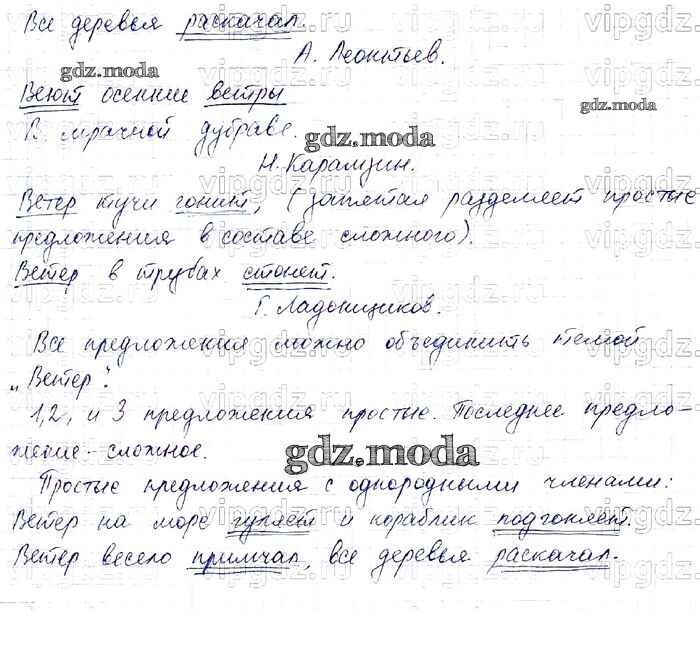 Все деревья раскачал.
А. Леонтьев.
Веют осенние ветры
В мрачной дубраве.
Н. Карамзин.
Ветер тучи гонит, (запятая разделяет простые
предложения в составе сложного).
Ветер в трубах стонет.
Г. Ладонщиков.
Все предложения можно объединить темой
„Ветер".
1, 2, и 3 предложения простые. Последнее предло-
жение - сложное.
Простые предложения с однородными членами:
Ветер на море гуляет и кораблик подгоняет.
Ветер весело примчал, все деревья раскачал.
gdz.moda
gdz.moda
gdz.moda
gdz.moda
vipgdz.ru